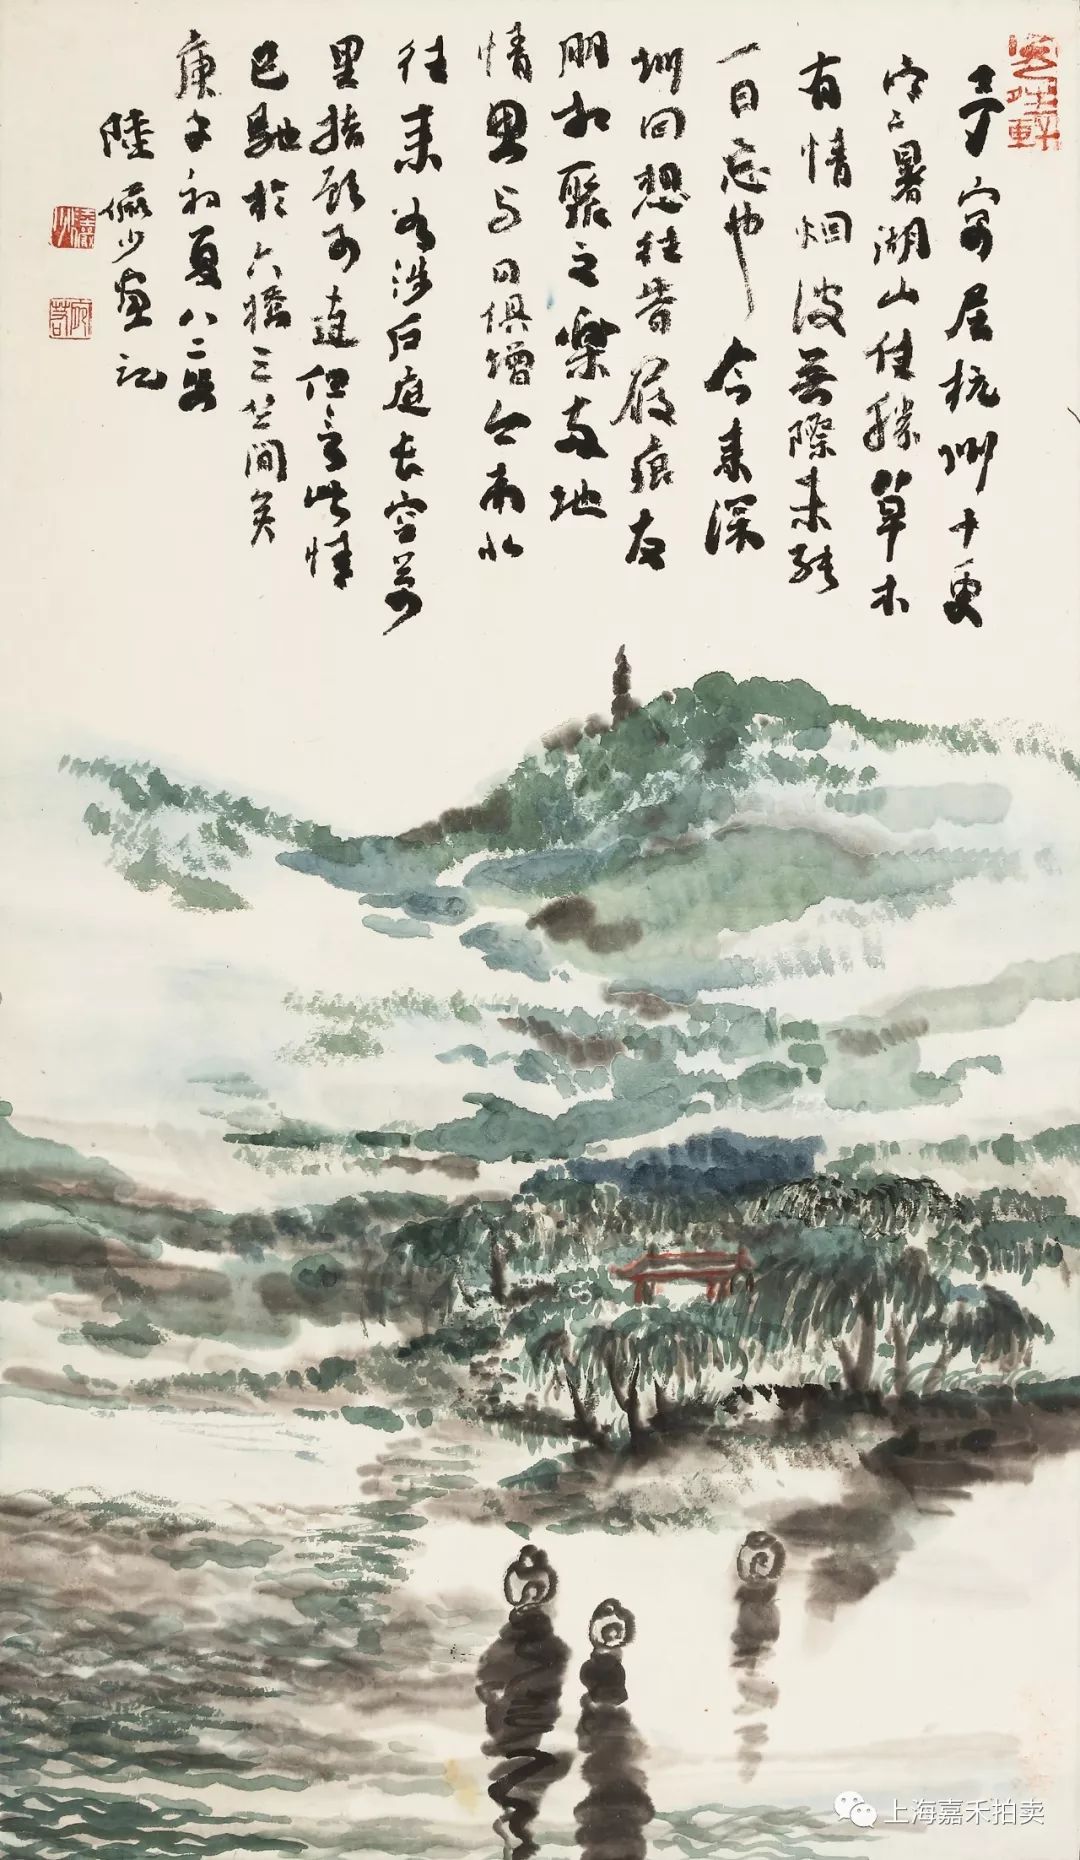 予寄居杭州十更
寒暑湖山佳勝草木
有情烟波無際未能
一日忘也今來深
圳回想往昔屐痕友
朋相聚之樂兩地
情思与日俱增今南北
往來涉戶庭長空萬
里指顧可達但言此情
已馳於六橋三竺間矣
庚午初夏八二叟
陸儼少畫記
上海嘉禾拍卖